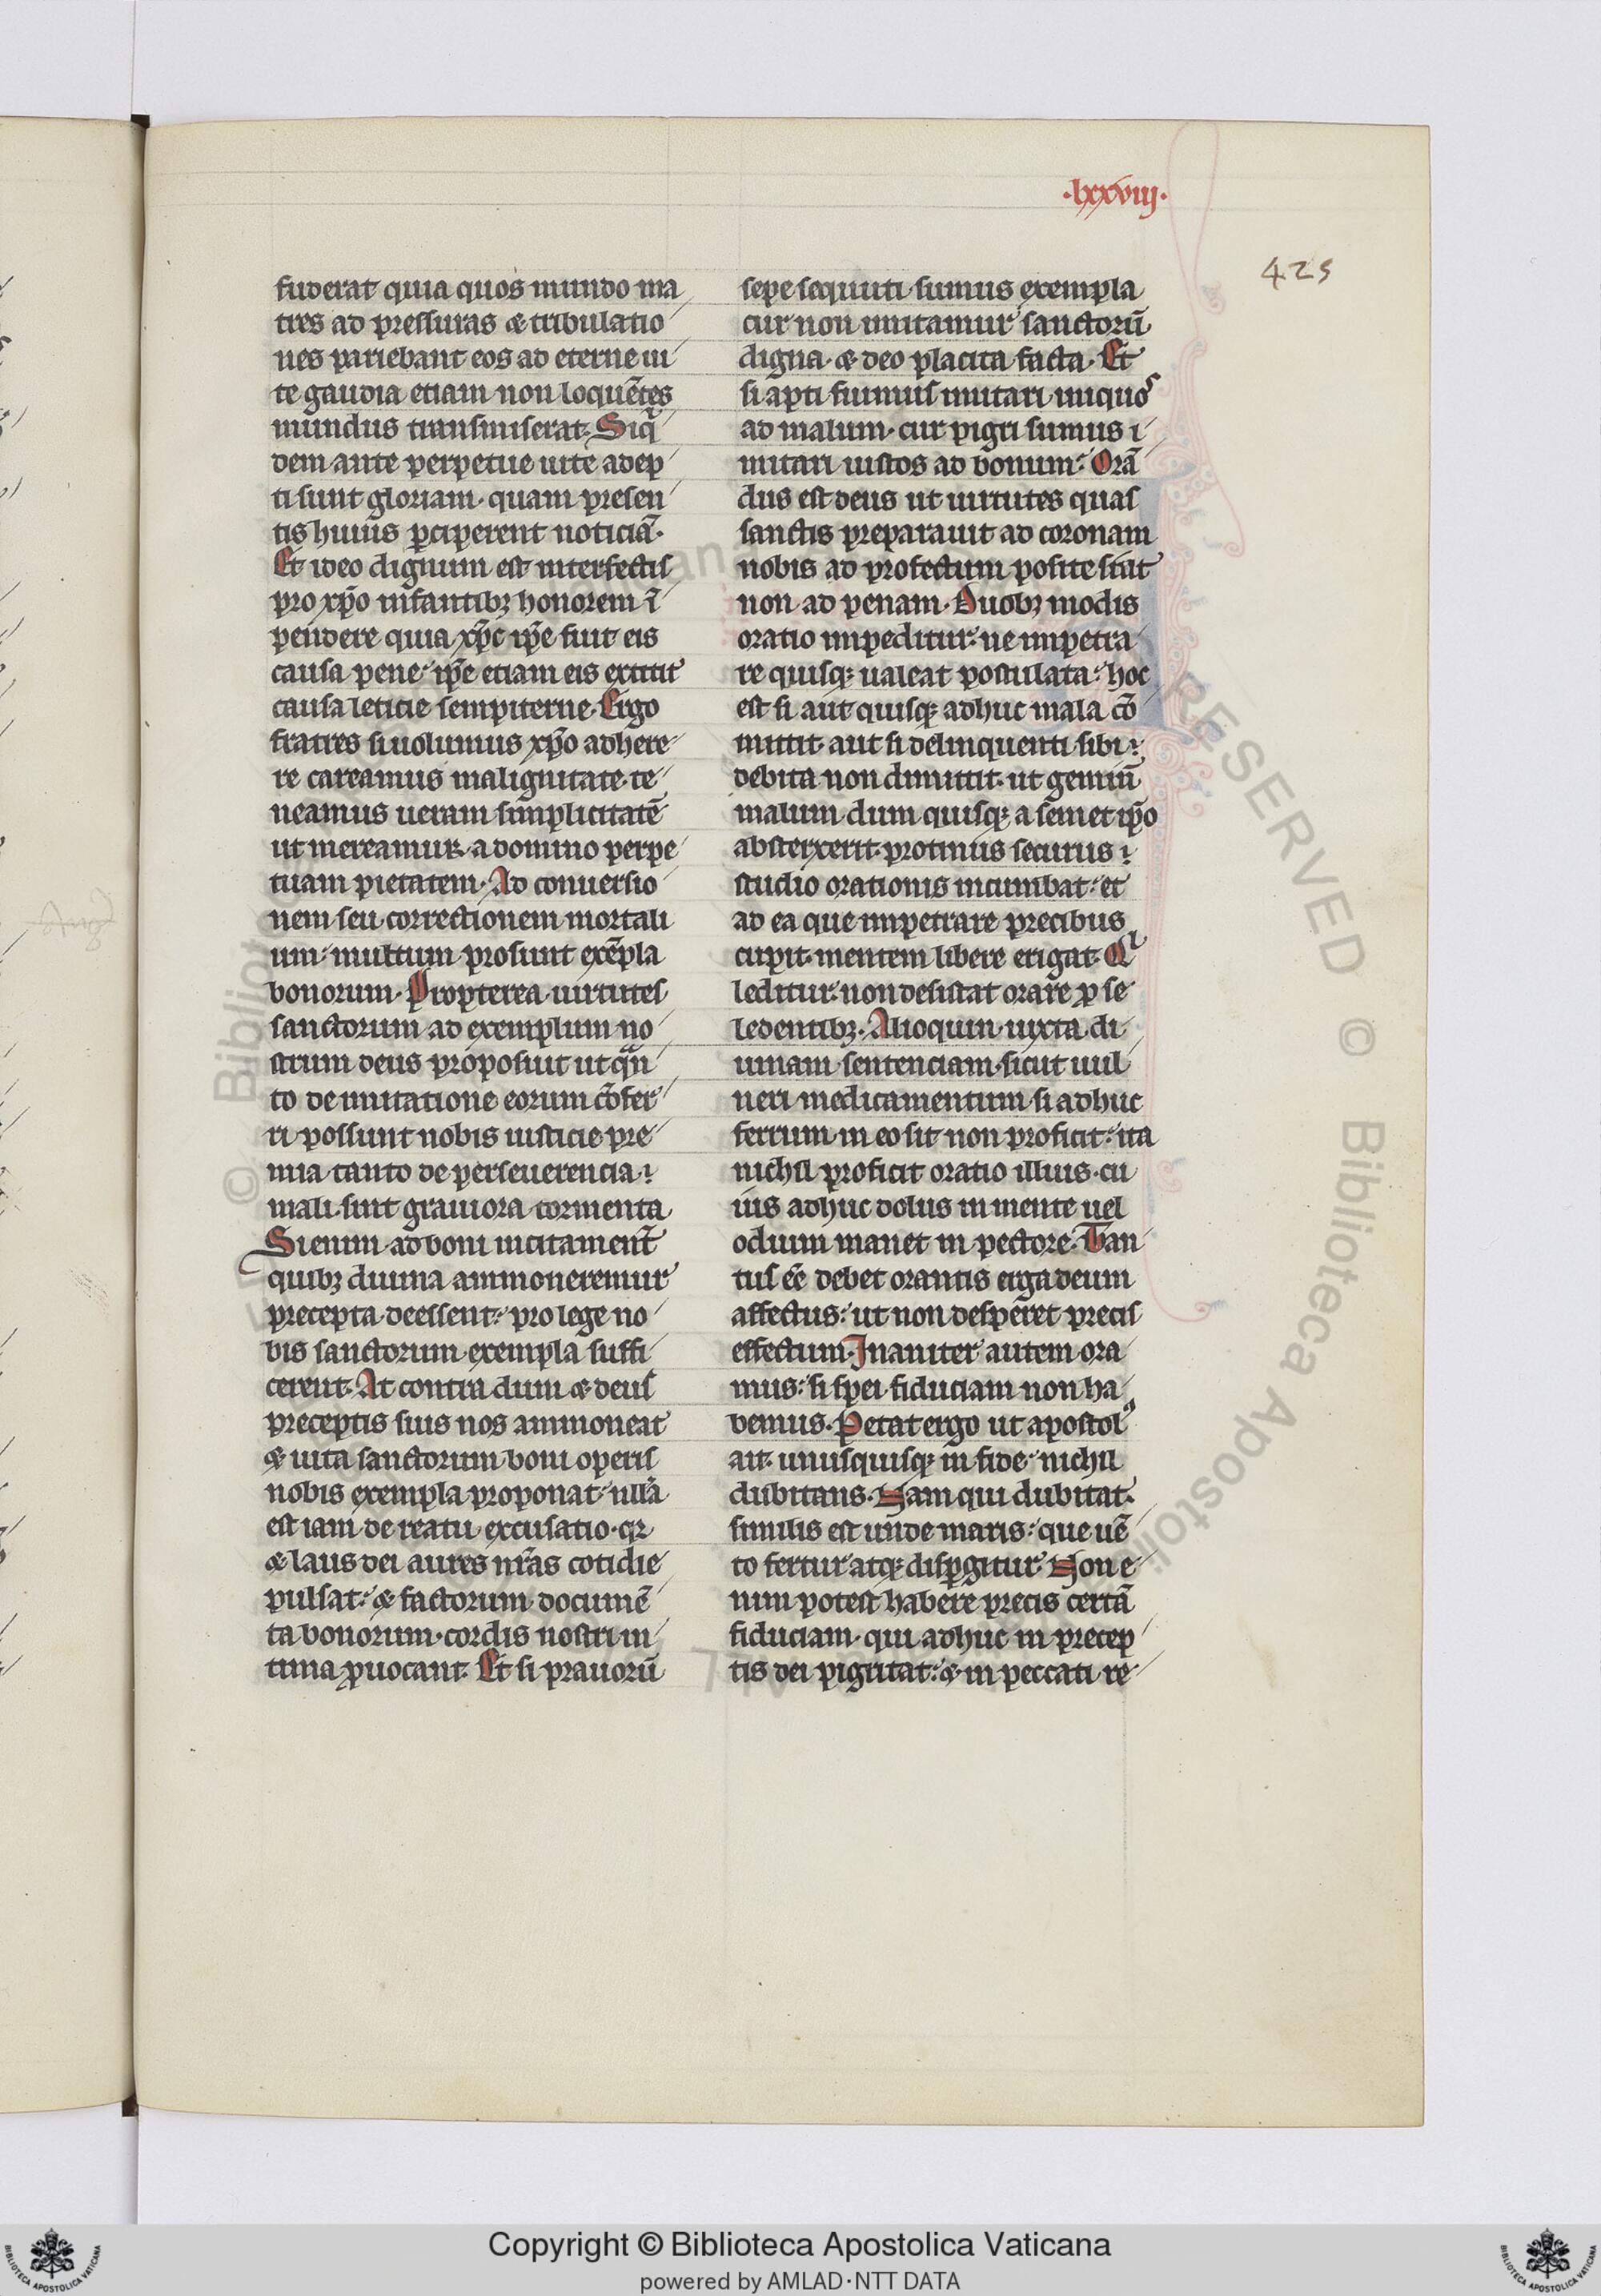 ·lxxviij·
425
fuderat quia quos mundo ma
tres ad pressuras & tribulatio
nes pariebant eos ad eterne ui
te gaudia etiam non loquẽtes
mundus transmiserat. Siq̃
dem ante perpetue uite adep
ti sunt gloriam. quam presen
tis huius ꝑciperent noticiã.
Et ideo dignum est interfectis
pro xp̃o infantibꝫ honorem ĩ
pendere quia xp̃c ip̃e fuit eis
causa pene: ip̃e etiam eis extitit
causa leticie sempiterne. Ergo
fratres si uolumus xp̃o adhere
re careamus malignitate. te
neamus ueram simplicitatẽ
ut mereamur. a domino perpe
tuam pietatem. Ad conuersio
nem seu correctionem mortali
um: multum prosunt exẽpla
bonorum. Propterea uirtutes
sanctorum ad exemplum no
strum deus proposuit ut qñ
to de imitatione eorum cõfer
ri possunt nobis iusticie pre
mia tanto de perseuerencia ⁊
mali sint grauiora tormenta
Si enim ad boni incitament̃
quibꝫ diuina ammoneremur
precepta deessent: pro lege no
bis sanctorum exempla suffi
cerent. At contra dum & deus
preceptis suis nos ammoneat
& uita sanctorum boni operis
nobis exempla proponat: nulla
est iam de reatu excusatio. qꝛ
& laus dei aures nr̃as cotidie
pulsat: & factorum documẽ
ta bonorum. cordis nostri in
tima ꝓuocant. Et si prauorũ
sepe sequuti sumus exempla
cur non imitamur sanctorũ
digna. & deo placita facta. Et
si apti fuimus imitari iniquos
ad malum. cur pigri sumus i
mitari iustos ad bonum: Orã
dus est deus ut uirtutes quas
sanctis preparauit ad coronam
nobis ad profectum posite sint
non ad penam. Duobꝫ modis
oratio impeditur: ne impetra
re quisqꝫ ualeat postulata: hoc
est si aut quisqꝫ adhuc mala cõ
mittit. aut si delinquenti sibi ⁊
debita non dimittit. ut geminũ
malum dum quisqꝫ a semet ip̃o
absterxerit. protinus securus ⁊
studio orationis incumbat: et
ad ea que impetrare precibus
cupit. mentem libere erigat. Qͥ
leditur: non desistat orare ꝓ se
ledentibꝫ. Alioquin iuxta di
uinam sentenciam. sicut uul
neri medicamentum si adhuc
ferrum in eo sit non proficit: ita
nichil proficit oratio illius. cu
ius adhuc dolus in mente uel
odium manet in pectore. Tan
tus eẽ debet orantis erga deum
affectus: ut non desperet precis
effectum. Inaniter autem ora
mus: si spei fiduciam non ha
bemus. Petat ergo ut apostolꝰ
ait. unusquisqꝫ in fide: nichil
dubitans. Nam qui dubitat.
similis est unde maris: que uẽ
to fertur atqꝫ disꝑgitur. Non e
nim potest habere precis certã
fiduciam. qui adhuc in precep
tis dei pigritat: & in peccati re
Copyright © Biblioteca Apostolica Vaticana
powered by AMLAD·NTT DATA